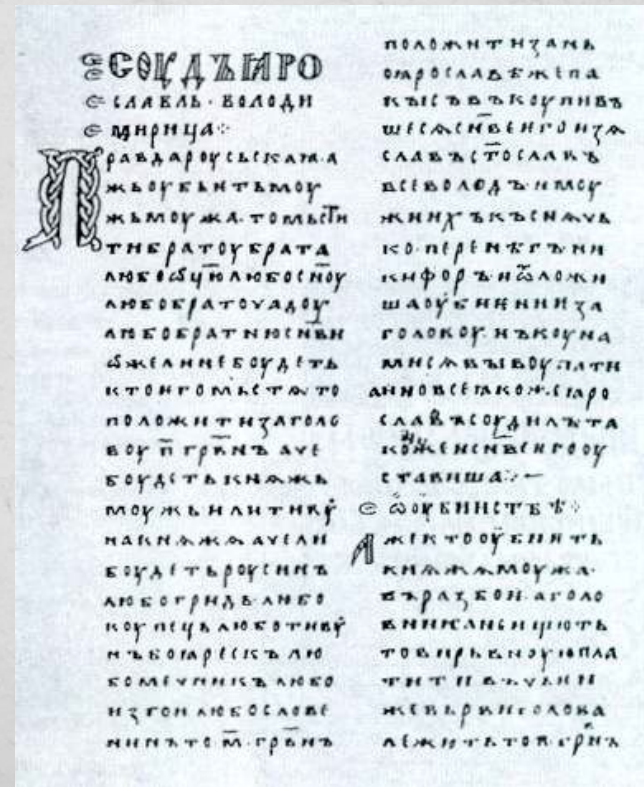 СОУДЪ ꙖРО
СЛАВЛЬ · ВОЛОДИ
МИРИЦА ⁘
ПРАВДА РОУСЬСКАꙖ · А
ЖЬ ОУБЬИТЬ МОУ
ЖЬ МОУЖА · ТО МЬСТИ
ТИ БРАТОУ БРАТА
ЛЮБО ѾЦЮ ЛЮБО СН҃ОУ
ЛЮБО БРАТОУЧАДОУ
ЛЮБО БРАТНЮ СН҃ВИ
ѾЖЕ ЛИ НЕ БОУДЕТЬ
КТО ИГО МЬСТѦ ТО
ПОЛОЖИТИ ЗА ГОЛО
ВОУ П҃ ГРВ҃НЪ АЧЕ
БОУДЕТЬ КНѦЖЬ
МОУЖЬ ИЛИ ТИВОУ
НА КНѦЖѦ АЧЕ ЛИ
БОУДЕТЬ РОУСИНЪ
ЛЮБО ГРИДЬ ЛЮБО
КОУПЕЦЬ ЛЮБО ТИВОУ
НЪ БОꙖРЕСКЪ ЛЮ
БО МЕЧНИКЪ ЛЮБО
ИЗГОИ ЛЮБО СЛОВЕ
НИНЪ ТО М҃ · ГРВ҃НЪ
ПОЛОЖИТИ ЗА НЬ
ПО ꙖРОСЛАВѢ ЖЕ ПА
КЫ СЪВЪКОУПИВЪ
ШЕСѦ СН҃ВЕ ИГО ИЗѦ
СЛАВЪ СТОСЛАВЪ
ВСЕВОЛОДЪ · И МОУ
ЖИ ИХЪ КЪСНѦЧЬ
КО · ПЕРЕНѢГЪ НИ
КИФОРЪ · И ѾЛОЖИ
ША ОУБИЕНИИ ЗА
ГОЛОВОУ · НЪ КОУНА
МИ СѦ ВЫКОУПАТИ
А ИНО ВСЕ ꙖКОЖЕ ꙖРО
СЛАВЪ СОУДИЛЪ ТА
КОЖЕ И СН҃ВЕ ИГО ОУ
СТАВИША ⁘
Ѿ ОУБИИСТВѢ ⁘
АЖЕ КТО ОУБИИТЬ
КНѦЖѦ МОУЖА ·
ВЪ РАЗБОИ · А ГОЛО
ВНИКА НЬ ИЩЮТЬ
ТО ВИРЬВНОУЮ ПЛА
ТИТИ ВЪ ЧЬИИ
ЖЕ ВЬРВИ ГОЛОВА
ЛЕЖИТЬ ТО П · ГРВ҃НЪ